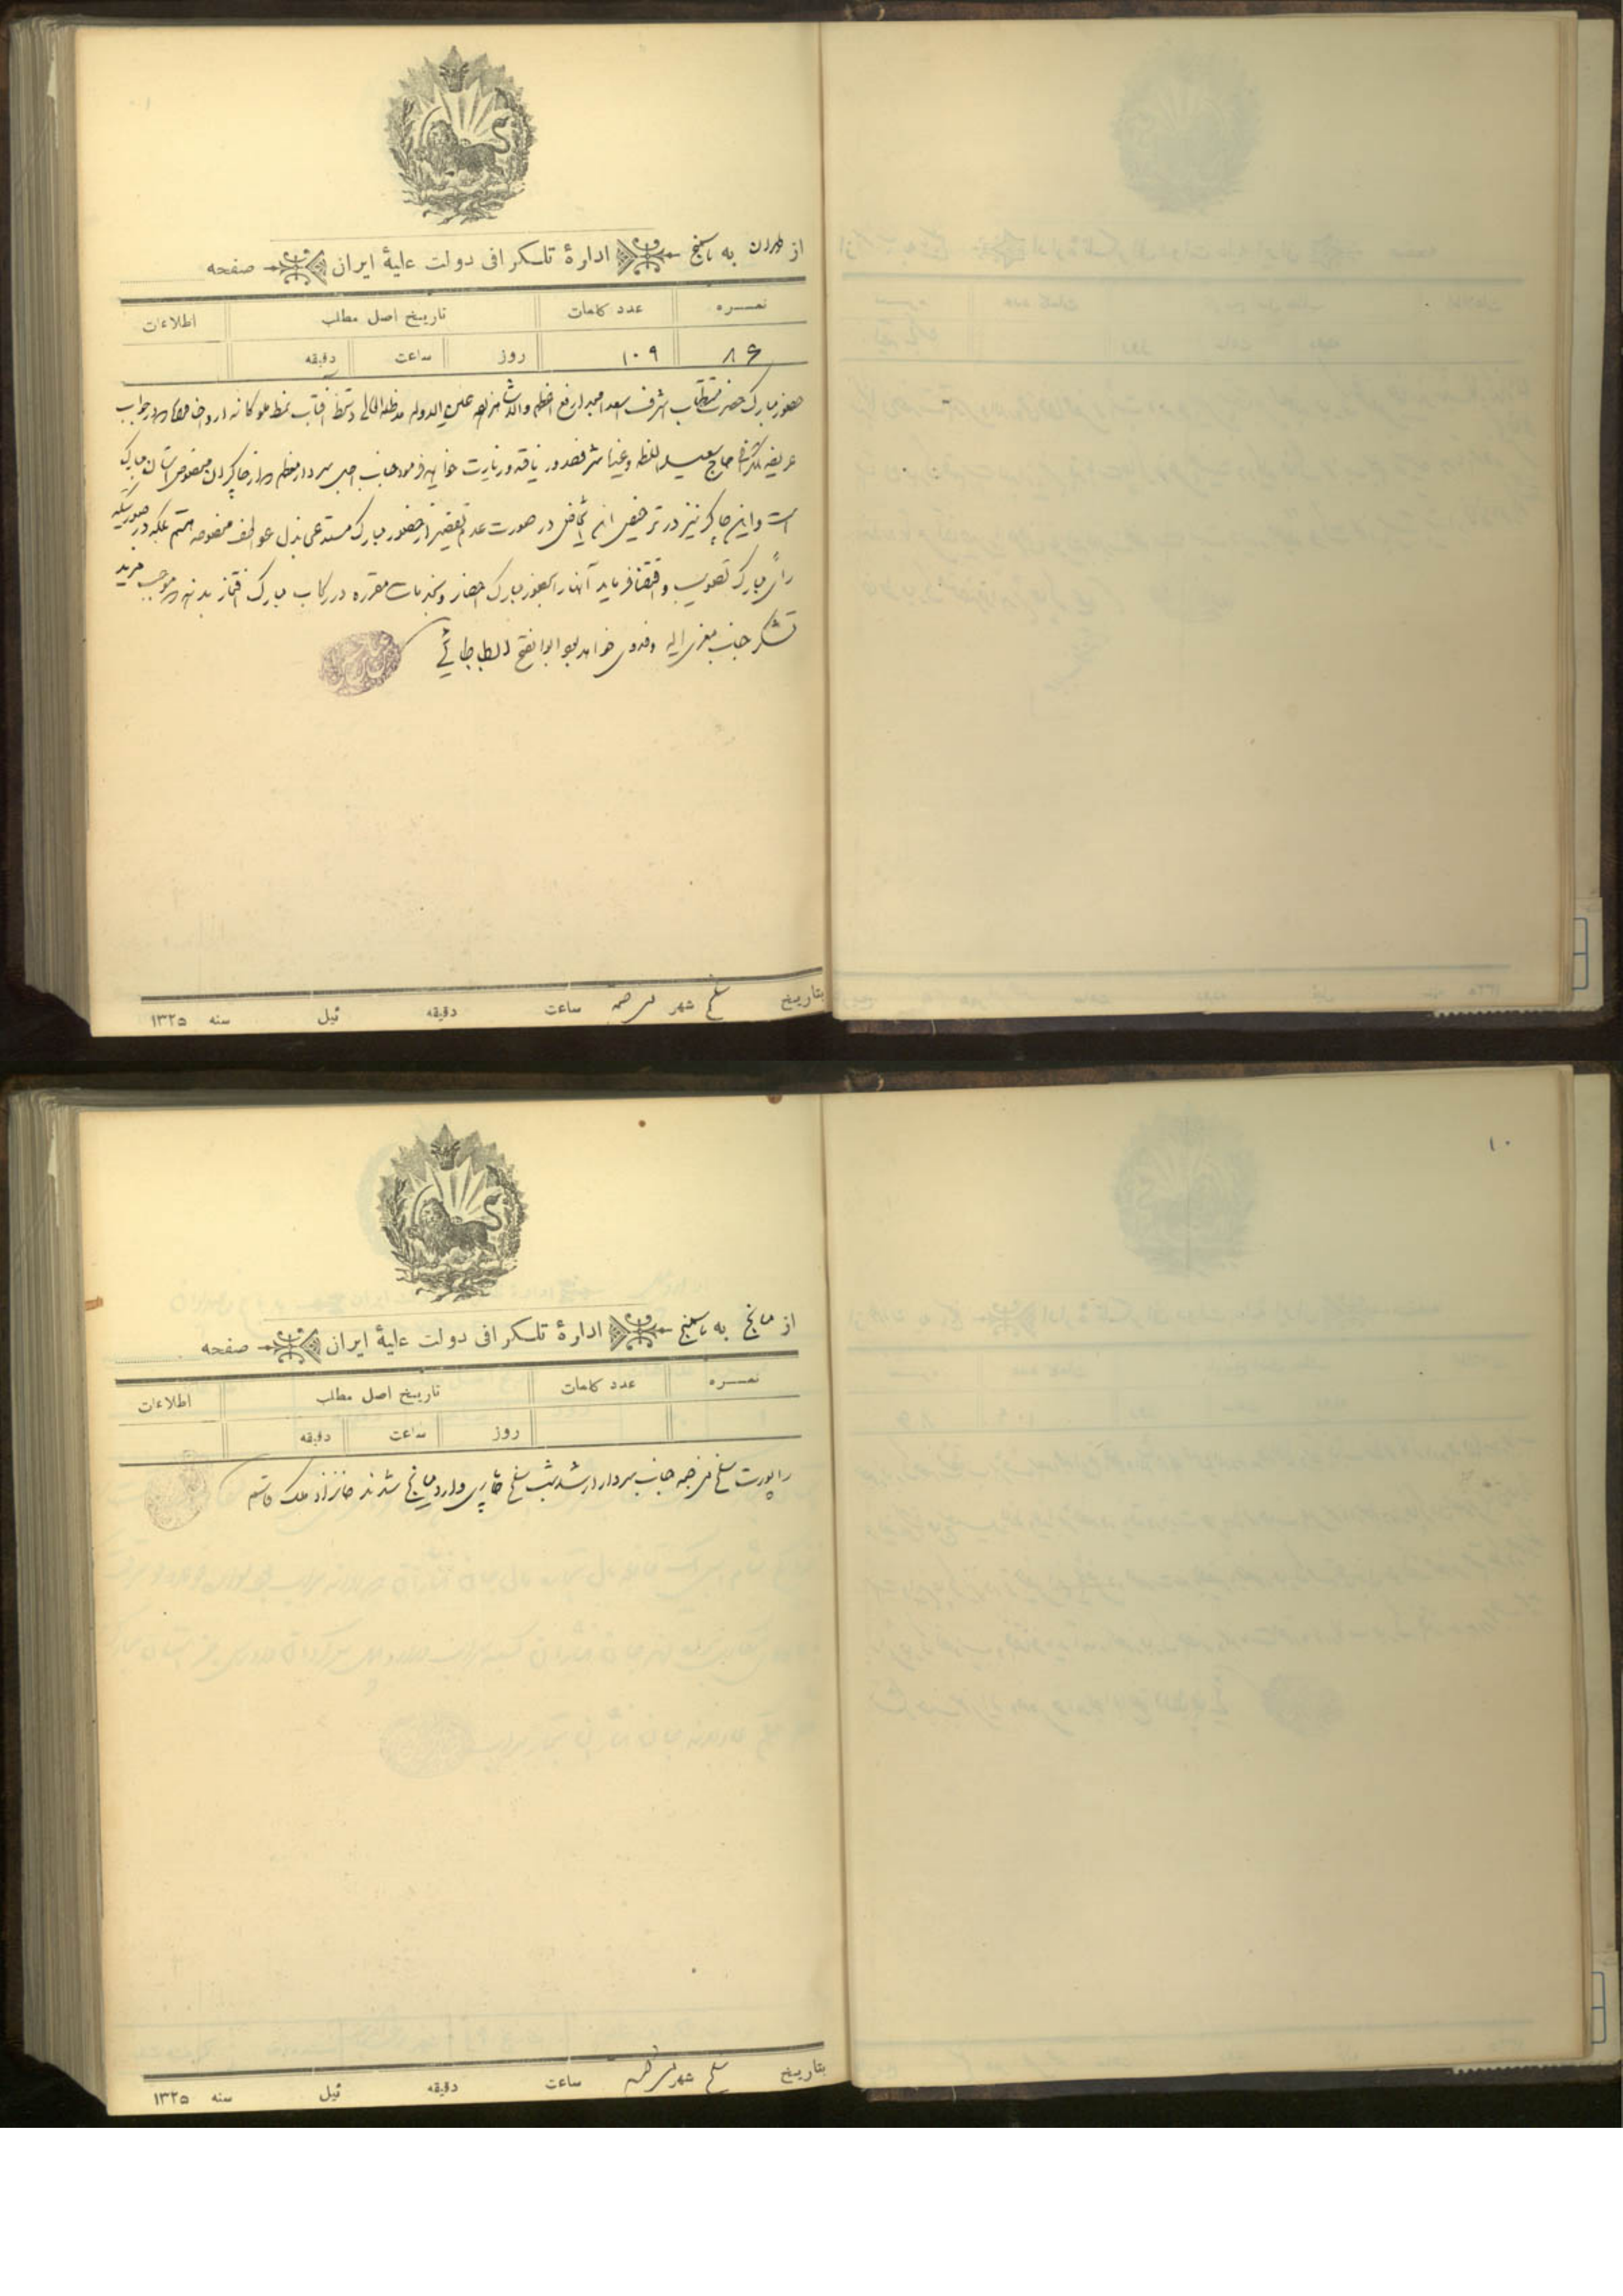 از طهران به باسمنج ادارهٔ تلگرافی دولت علیهٔ ایران صفحه
نمره عدد کلمات تاریخ اصل مطلب اطلاعات
۸۶ ۱۰۹ روز ساعت دقیقه
حضور مبارک حضرت مستطاب اشرف اسعد امجد ارفع اعظم والا شاهزاده عین الدوله مدظله العالی دستخط آفتاب نمط ملوکانه ارواحنا فداه در جواب
عریضه تلگرافی حاج سعید السلطنه و غیره شرف صدور یافته و زیارت خواهند فرمود جناب اجل سردار معظم از چاکران مخصوص آستان مبارک
است و این چاکر نیز در ترخیص این اشخاص در صورت عدم تقصیر از حضور مبارک مستدعی بذل عواطف مخصوصه هستم بلکه در صورتیکه
رأی مبارک تصویب و اقتضا فرماید آنها را بحضور مبارک احضار و بخدمات مقرره در رکاب مبارک افتخار بدهند موجب مزید
تشکر جناب معزی الیه و فدوی خواهد بود ابوالفتح الطباطبائی
بتاریخ سلخ شهر ساعت دقیقه ئیل سنه ۱۳۲۵
۱۰
از میانج به باسمنج ادارهٔ تلگرافی دولت علیهٔ ایران صفحه
نمره عدد کلمات تاریخ اصل مطلب اطلاعات
روز ساعت دقیقه
راپورت سلخ جناب سردار ارشد شب سلخ وارد میانج شدند خانزاد ملک قاسم
بتاریخ سلخ شهر ساعت دقیقه ئیل سنه ۱۳۲۵